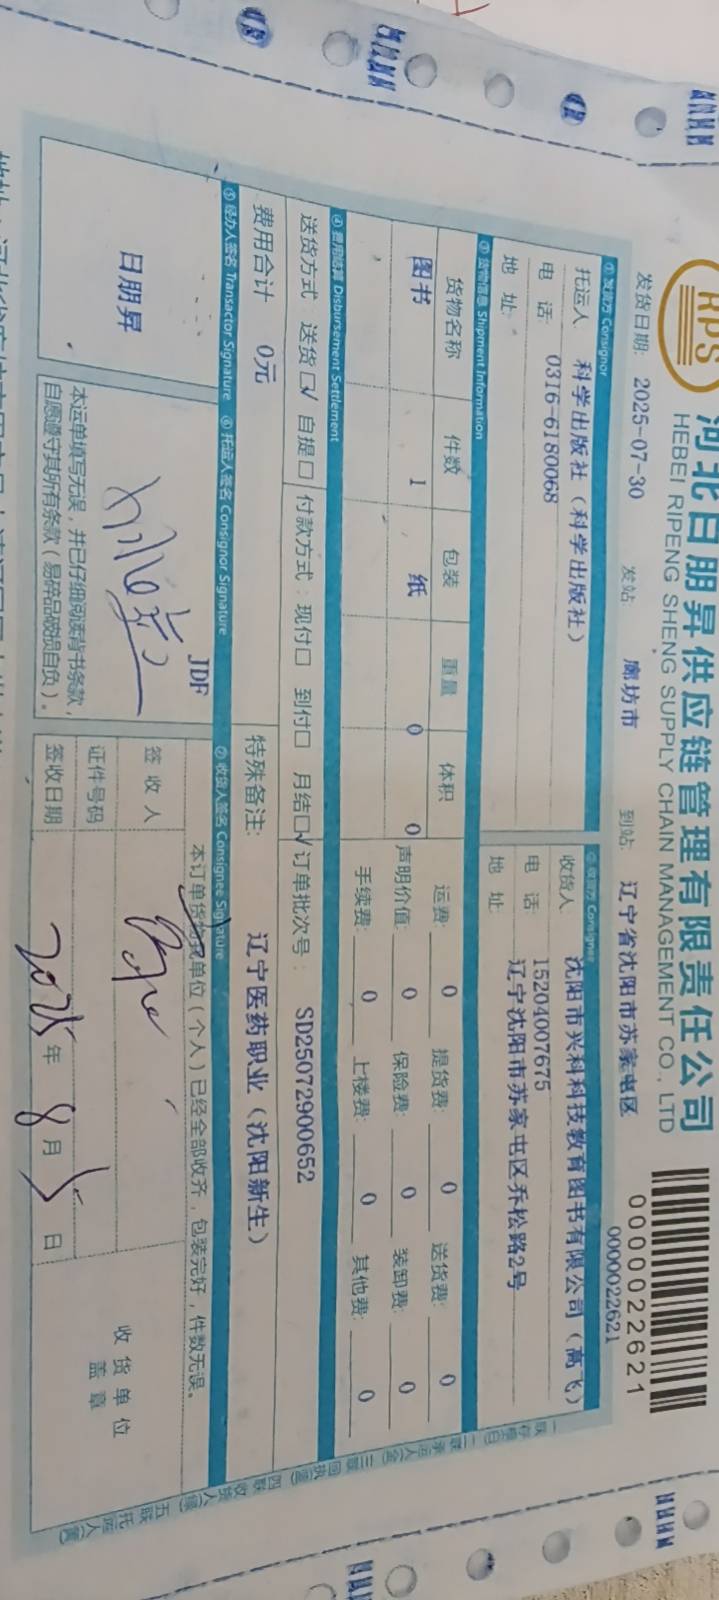 RPS
河北日朋昇供应链管理有限责任公司
HEBEI RIPENG SHENG SUPPLY CHAIN MANAGEMENT CO., LTD
0000022621
0000022621
发货日期: 2025-07-30 发站 廊坊市 到站: 辽宁省沈阳市苏家屯区
① 发货方 Consignor
② 收货方 Consignee
托运人 科学出版社（科学出版社）
收货人 沈阳市兴科科技教育图书有限公司（高飞）
电 话: 0316-6180068
电 话: 15204007675
地 址:
地 址: 辽宁沈阳市苏家屯区乔松路2号
③ 货物信息 Shipment Information
货物名称 件数 包装 重量 体积
图书 1 纸 0 0
运费: 0 提货费: 0 送货费: 0
声明价值: 0 保险费: 0 装卸费: 0
手续费: 0 上楼费: 0 其他费: 0
④ 费用结算 Disbursement Settlement
送货方式 送货□√ 自提□ 付款方式: 现付□ 到付□ 月结□√ 订单批次号: SD25072900652
费用合计 0元 特殊备注: 辽宁医药职业（沈阳新生）
⑤ 经办人签名 Transactor Signature ⑥ 托运人签名 Consignor Signature ⑦ 收货人签名 Consignee Signature
日朋昇
JDF
本运单填写无误，并已仔细阅读背书条款，
自愿遵守其所有条款（易碎品破损自负）。
本订单货物我单位（个人）已经全部收齐，包装完好，件数无误。
签 收 人
证件号码
签收日期 2025年 8月 5日
收 货 单 位
盖 章